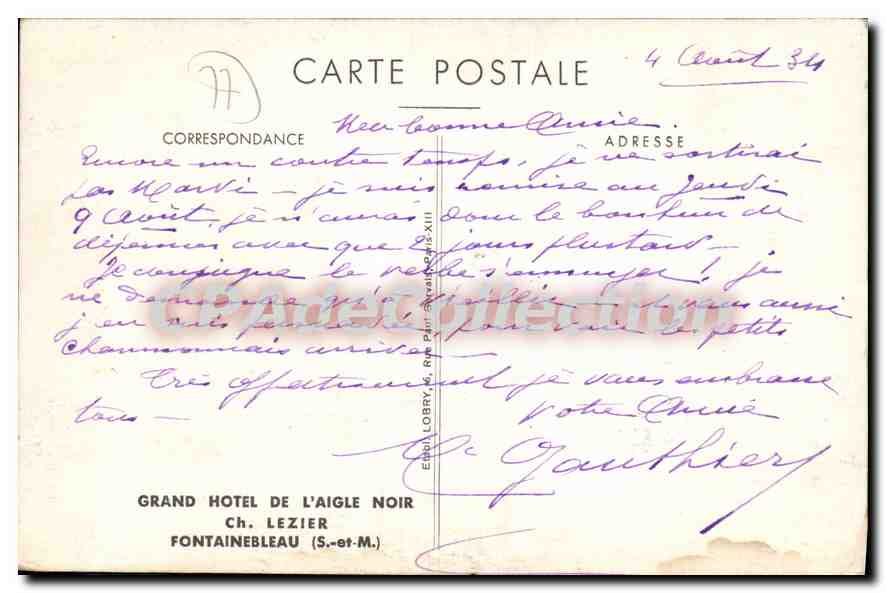 77
4 Août 34
CARTE POSTALE
CORRESPONDANCE
ADRESSE
Ma bonne Amie.
Encore un contre temps, je ne sortirai
pas Mardi — je suis remise au Jeudi
9 Août, je n'aurai donc le bonheur de
déjeuner avec que 2 jours plus tard —
Je conjugue le verbe s'ennuyer! je
ne demande qu'à — et vous aussi
j'en suis persuadée, pour voir les petits
Chaumonnais arriver —
Très affectueusement je vous embrasse
tous —
Votre Amie
Gauthier
CPADeCollection
Etabl. LOBRY, 6, Rue Paul Gervais, Paris-XIII
GRAND HOTEL DE L'AIGLE NOIR
Ch. LEZIER
FONTAINEBLEAU (S.-et-M.)